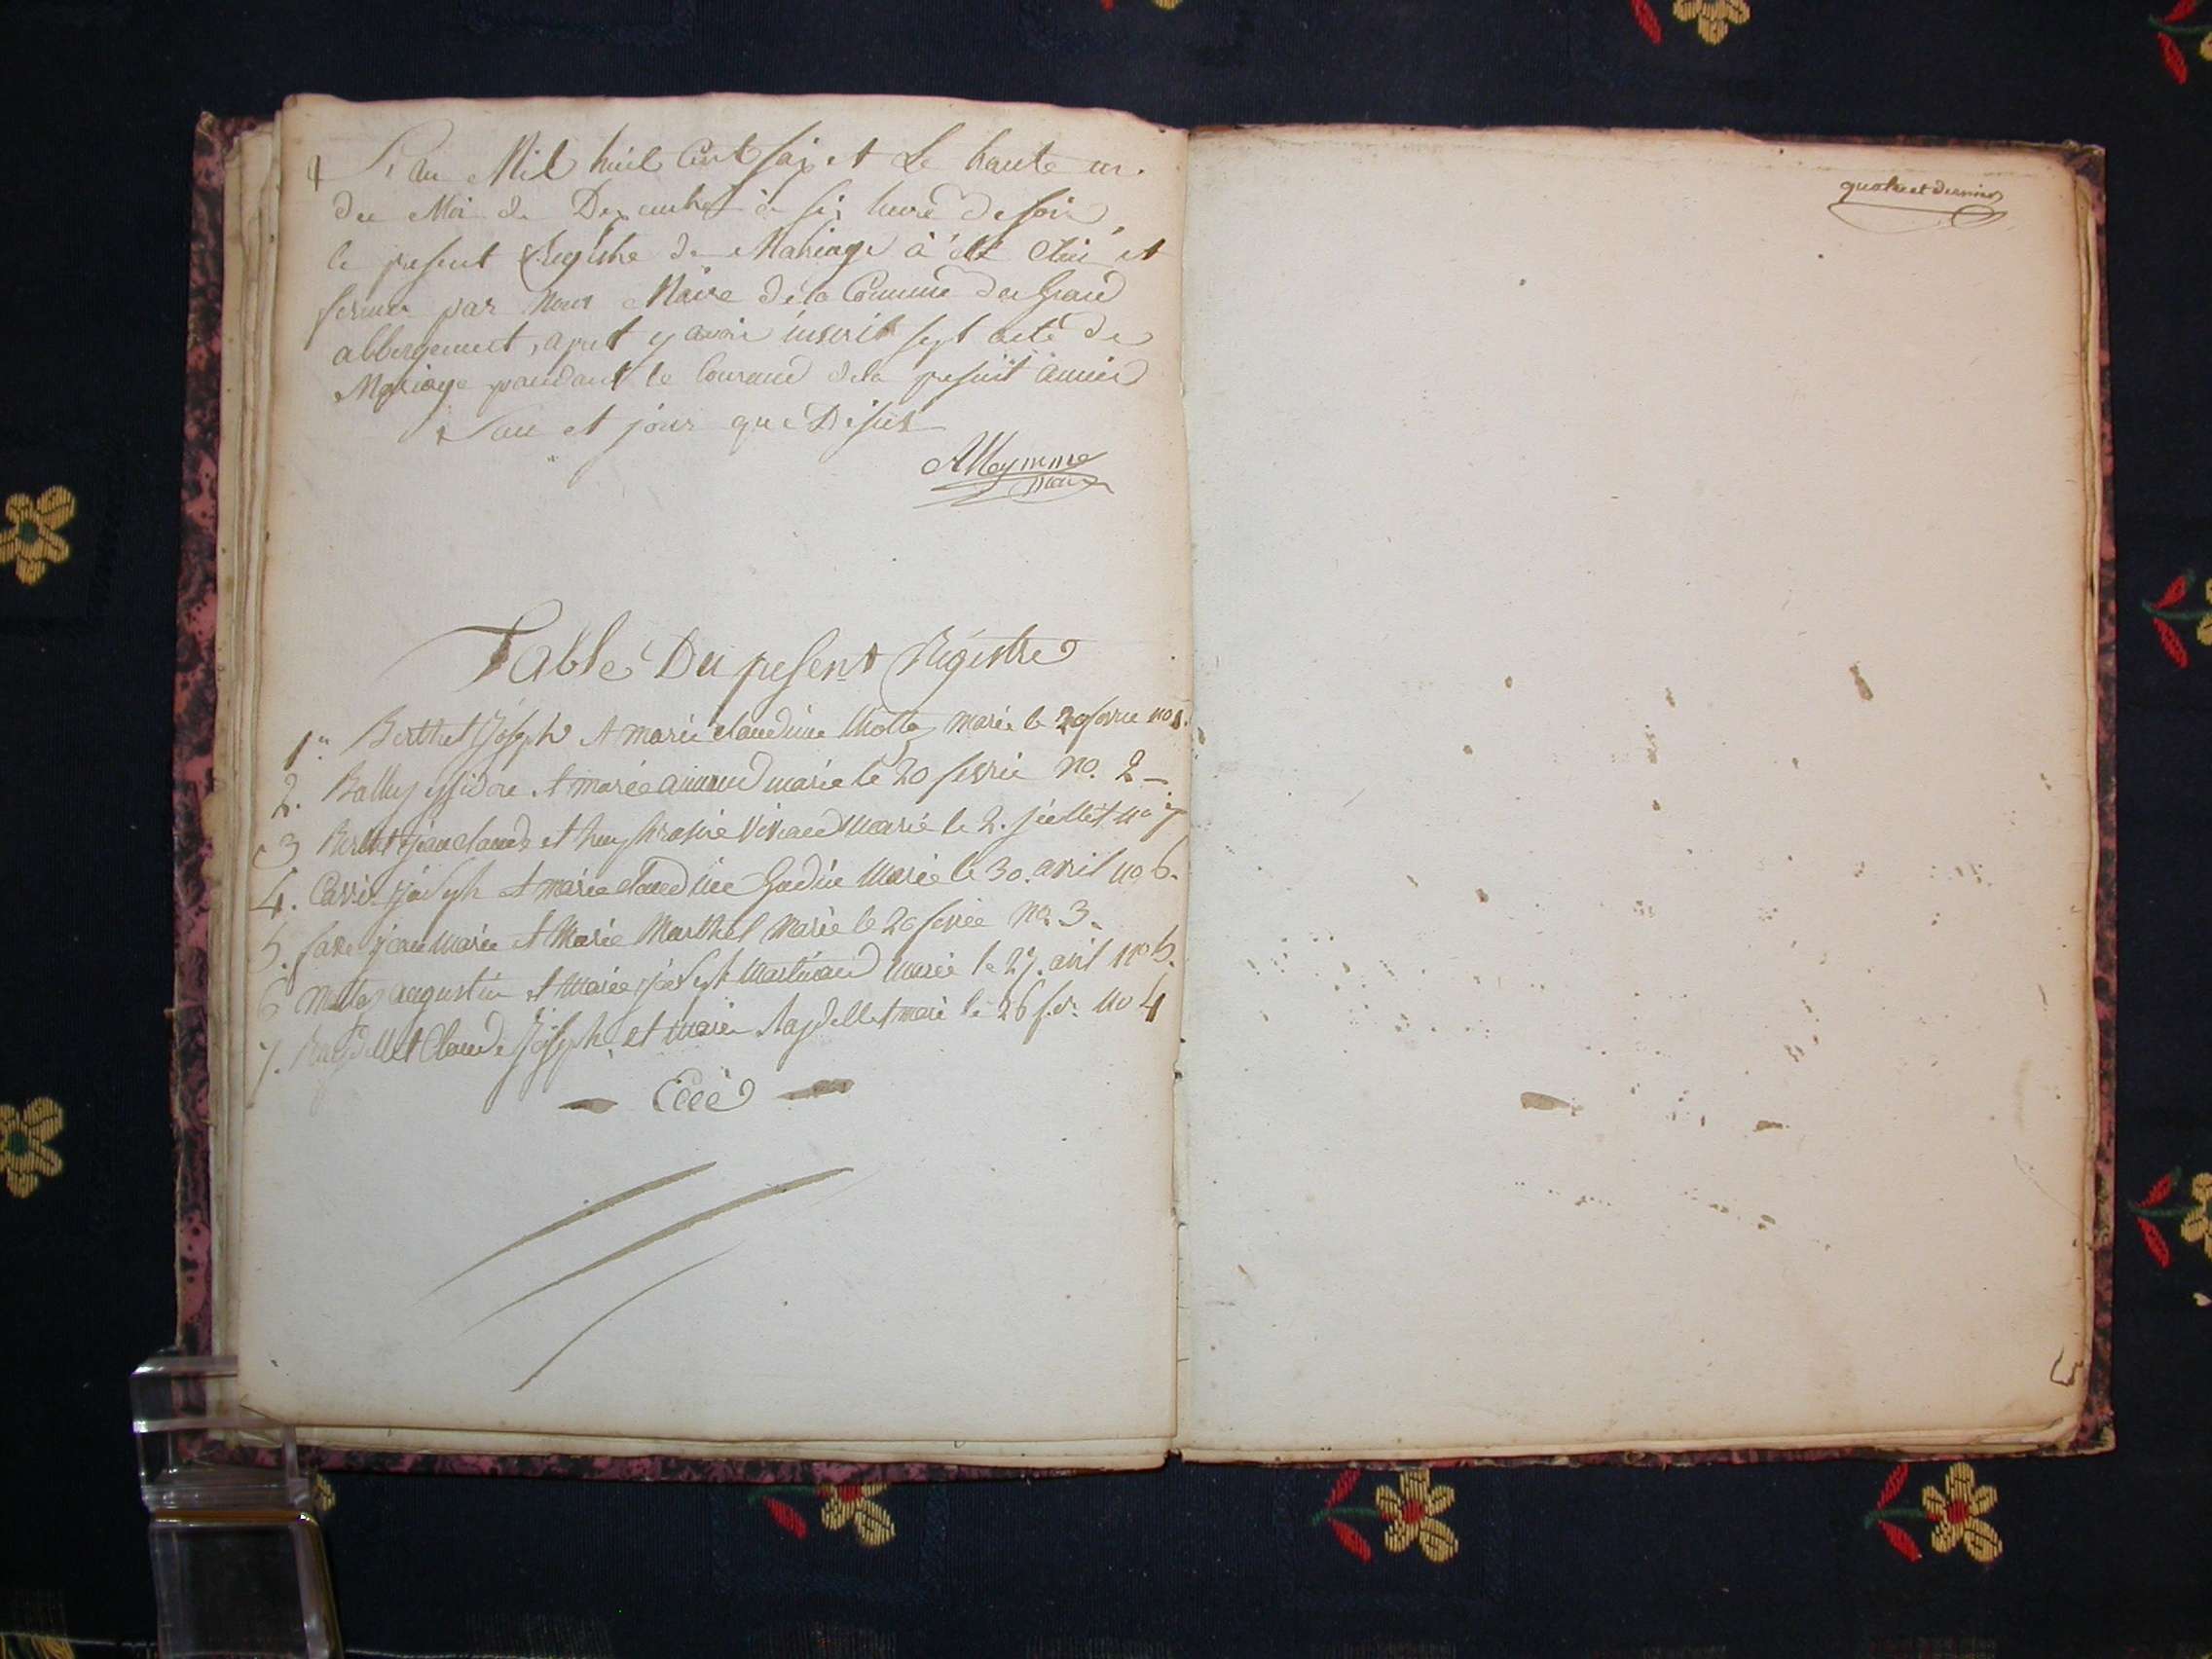 L'an Mil huit Cent Saix et Le trante un
du Moi de Dexembre à six heure de soir
le present Registre de Mariage à été Clos et
fermer par Nous Maire de la Commune du Grand
abbergement, apret y avoir inscrit sept acte de
Mariage pandant le Courand dela present année
L'an et jour que Desus
AMeynme
maire
Table Du presen-t Régistre
1er Berthet Joseph et marie claudine Mollex marie le 20 fevrie no 1.
2. Balley issidore et marie marie le 20 fevrie no. 2 -
3 Berthet jean claude et marié le 2. juillet no 7
4. joseph et marie claudine Godin Marie le 30. avril no 6.
5. jean marie et Marie Marthel Marie le 20 fevrie no 3.
6 augustin et Marie joseph Martinand marie le 27. avril no 5.
7. Raydellet Claude Joseph et marie Raydellet marié le 26 fev. no 4
quatre et dernier